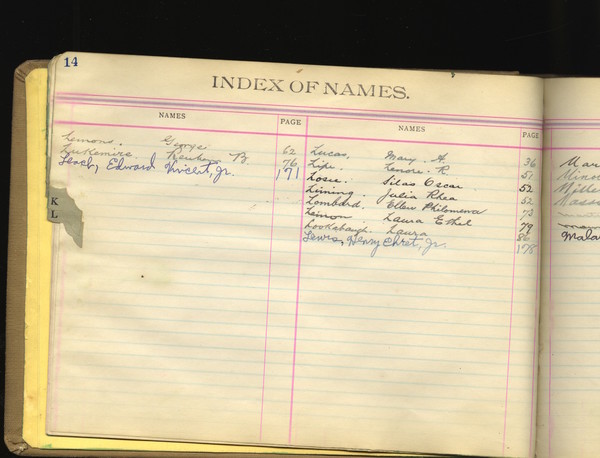 14
INDEX OF NAMES.
NAMES PAGE NAMES PAGE
Lemons. George 62
Reuben B. 76
Leach, Edward Vincent, Jr. 171
Lucas, Mary A. 36
Lipe. Lenore R. 51
Losie. Silas Oscar. 52
Lining. Julia Rhea 52
Lombard. Ellen Philomena 73
Lemon. Laura Ethel 79
Lookabaugh. Laura 86
Lewis, Henry Chret, Jr. 178
K
L